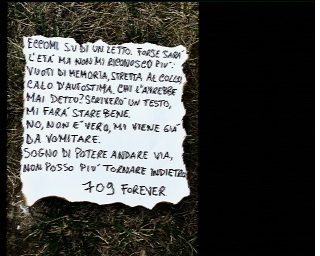 ECCOMI SU DI UN LETTO. FORSE SARA'
L'ETA' MA NON MI RICONOSCO PIU':
VUOTI DI MEMORIA, STRETTA AL COLLO,
CALO D'AUTOSTIMA. CHI L'AVREBBE
MAI DETTO? SCRIVERO' UN TESTO,
MI FARA' STARE BENE.
NO, NON E' VERO, MI VIENE GIA'
DA VOMITARE.
SOGNO DI POTERE ANDARE VIA,
NON POSSO PIU' TORNARE INDIETRO
709 FOREVER